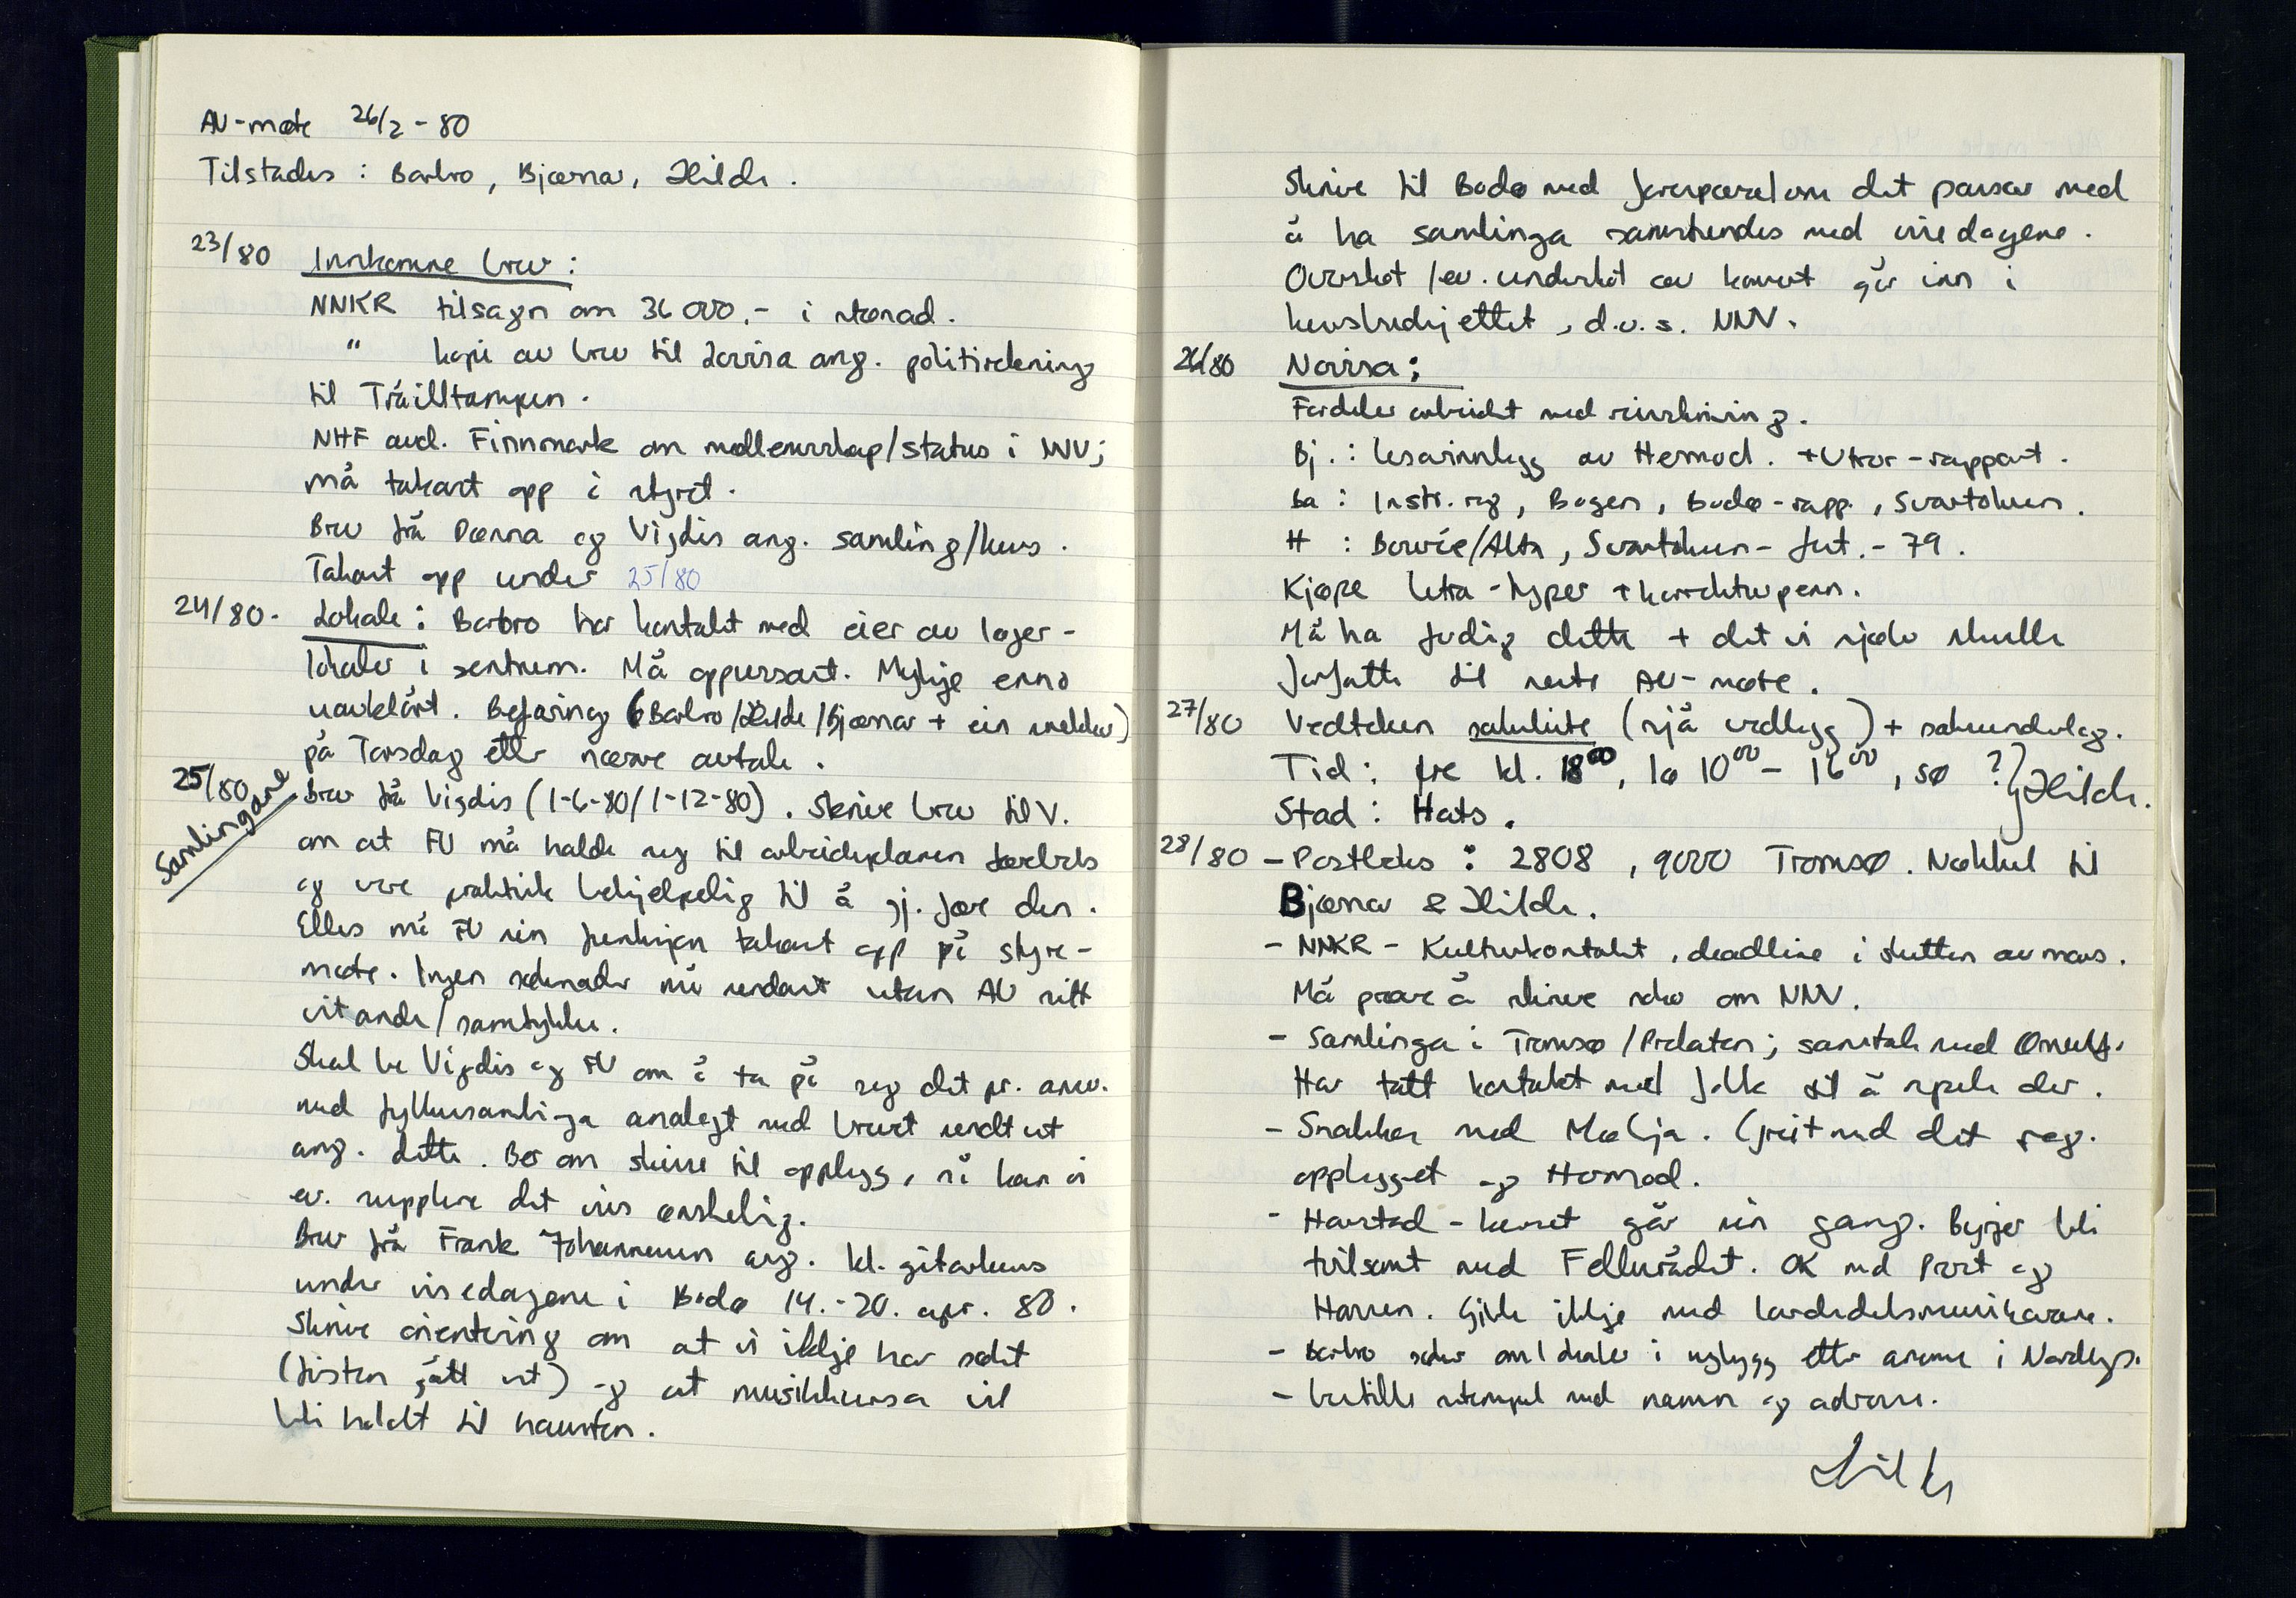 AU-møte 26/2-80
Tilstades: Barbro, Bjørnar, Hilde.
23/80 Innkomne brev:
NNKR tilsagn om 36 000,- i stønad.
" kopi av brev til Lovisa ang. politirekning
til Tråilltampen.
NHF avd. Finnmark om medlemskap/status i NNV;
må takast opp i styret.
Brev frå Dønna og Vigdis ang. samling/kurs.
Takast opp under 25/80
24/80. Lokale: Barbro har kontakt med eier av lager-
lokaler i sentrum. Må oppussast. Mykje enno
uavklårt. Befaring (Barbro/Hilde/Bjørnar + ein snekker)
på Torsdag etter nærare avtale.
25/80 Samlingane
Brev frå Vigdis (1-6-80/1-12-80). Skrive brev til V.
om at FU må halde seg til arbeidsplanen førebels
og vere praktisk behjelpelig til å gj. føre den.
Elles må FU sin funksjon takast opp på styre-
møte. Ingen søknader må sendast utan AU sitt
vitande/samtykke.
Skal be Vigdis og FU om å ta på seg det pr. arb.
med fylkessamlinga analogt med brevet sendt ut
ang. dette. Ber om skisse til opplegg, så kan vi
ev. supplere det viss ønskelig.
Brev frå Frank Johannesen ang. kl. gitarkurs
under visedagene i Bodø 14.-20. apr. 80.
Skrive orientering om at vi ikkje har søkt
(fristen gått ut) og at musikkursa vil
bli haldt til hausten.
Skrive til Bodø med forespørsel om det passar med
å ha samlinga samstundes med visedagene.
Overskot/ev. underskot av konsert går inn i
kursbudsjettet, d.v.s. NNV.
26/80 Norvisa:
Fordeler arbeidet med reinskriving.
Bj.: lesarinnlegg av Hermod. + Utror-rapport.
Ba: Instr. seg, Bogen, Bodø-rapp., Svartokeen.
H : Bowie/Alta, Svartokeen-fest.-79.
Kjøpe letra-typer + korrekturpenn.
Må ha ferdig dette + det vi sjølv skulle
forfatte til neste AU-møte.
27/80 Vedteken sakliste (sjå vedlegg) + saksunderlag.
Tid: fre kl. 18⁰⁰, lø 10⁰⁰ - 16⁰⁰, sø ?} Hilde.
Stad: Hats.
28/80 - Postboks: 2808, 9000 Tromsø. Nøkkel til
Bjørnar & Hilde.
- NNKR - Kulturkontakt, deadline i slutten av mars.
Må prøve å skrive noko om NNV.
- Samlinga i Tromsø/Prelaten; samtale med
Har tatt kontakt med folk til å spele der.
- Snakka med Mælja. Greit med det seg.
opplegget og Hermod.
- Harstad-kurset går sin gang. Begjer bli
tvilsomt med Folkerådet. OK med Prost og
Hansen. Gjekk ikkje med landsdelsmusikarane.
- Barbro søker om lokaler i nybygg etter ... i Nordlys.
- bestille stempel med namn og adresse.
Hilde